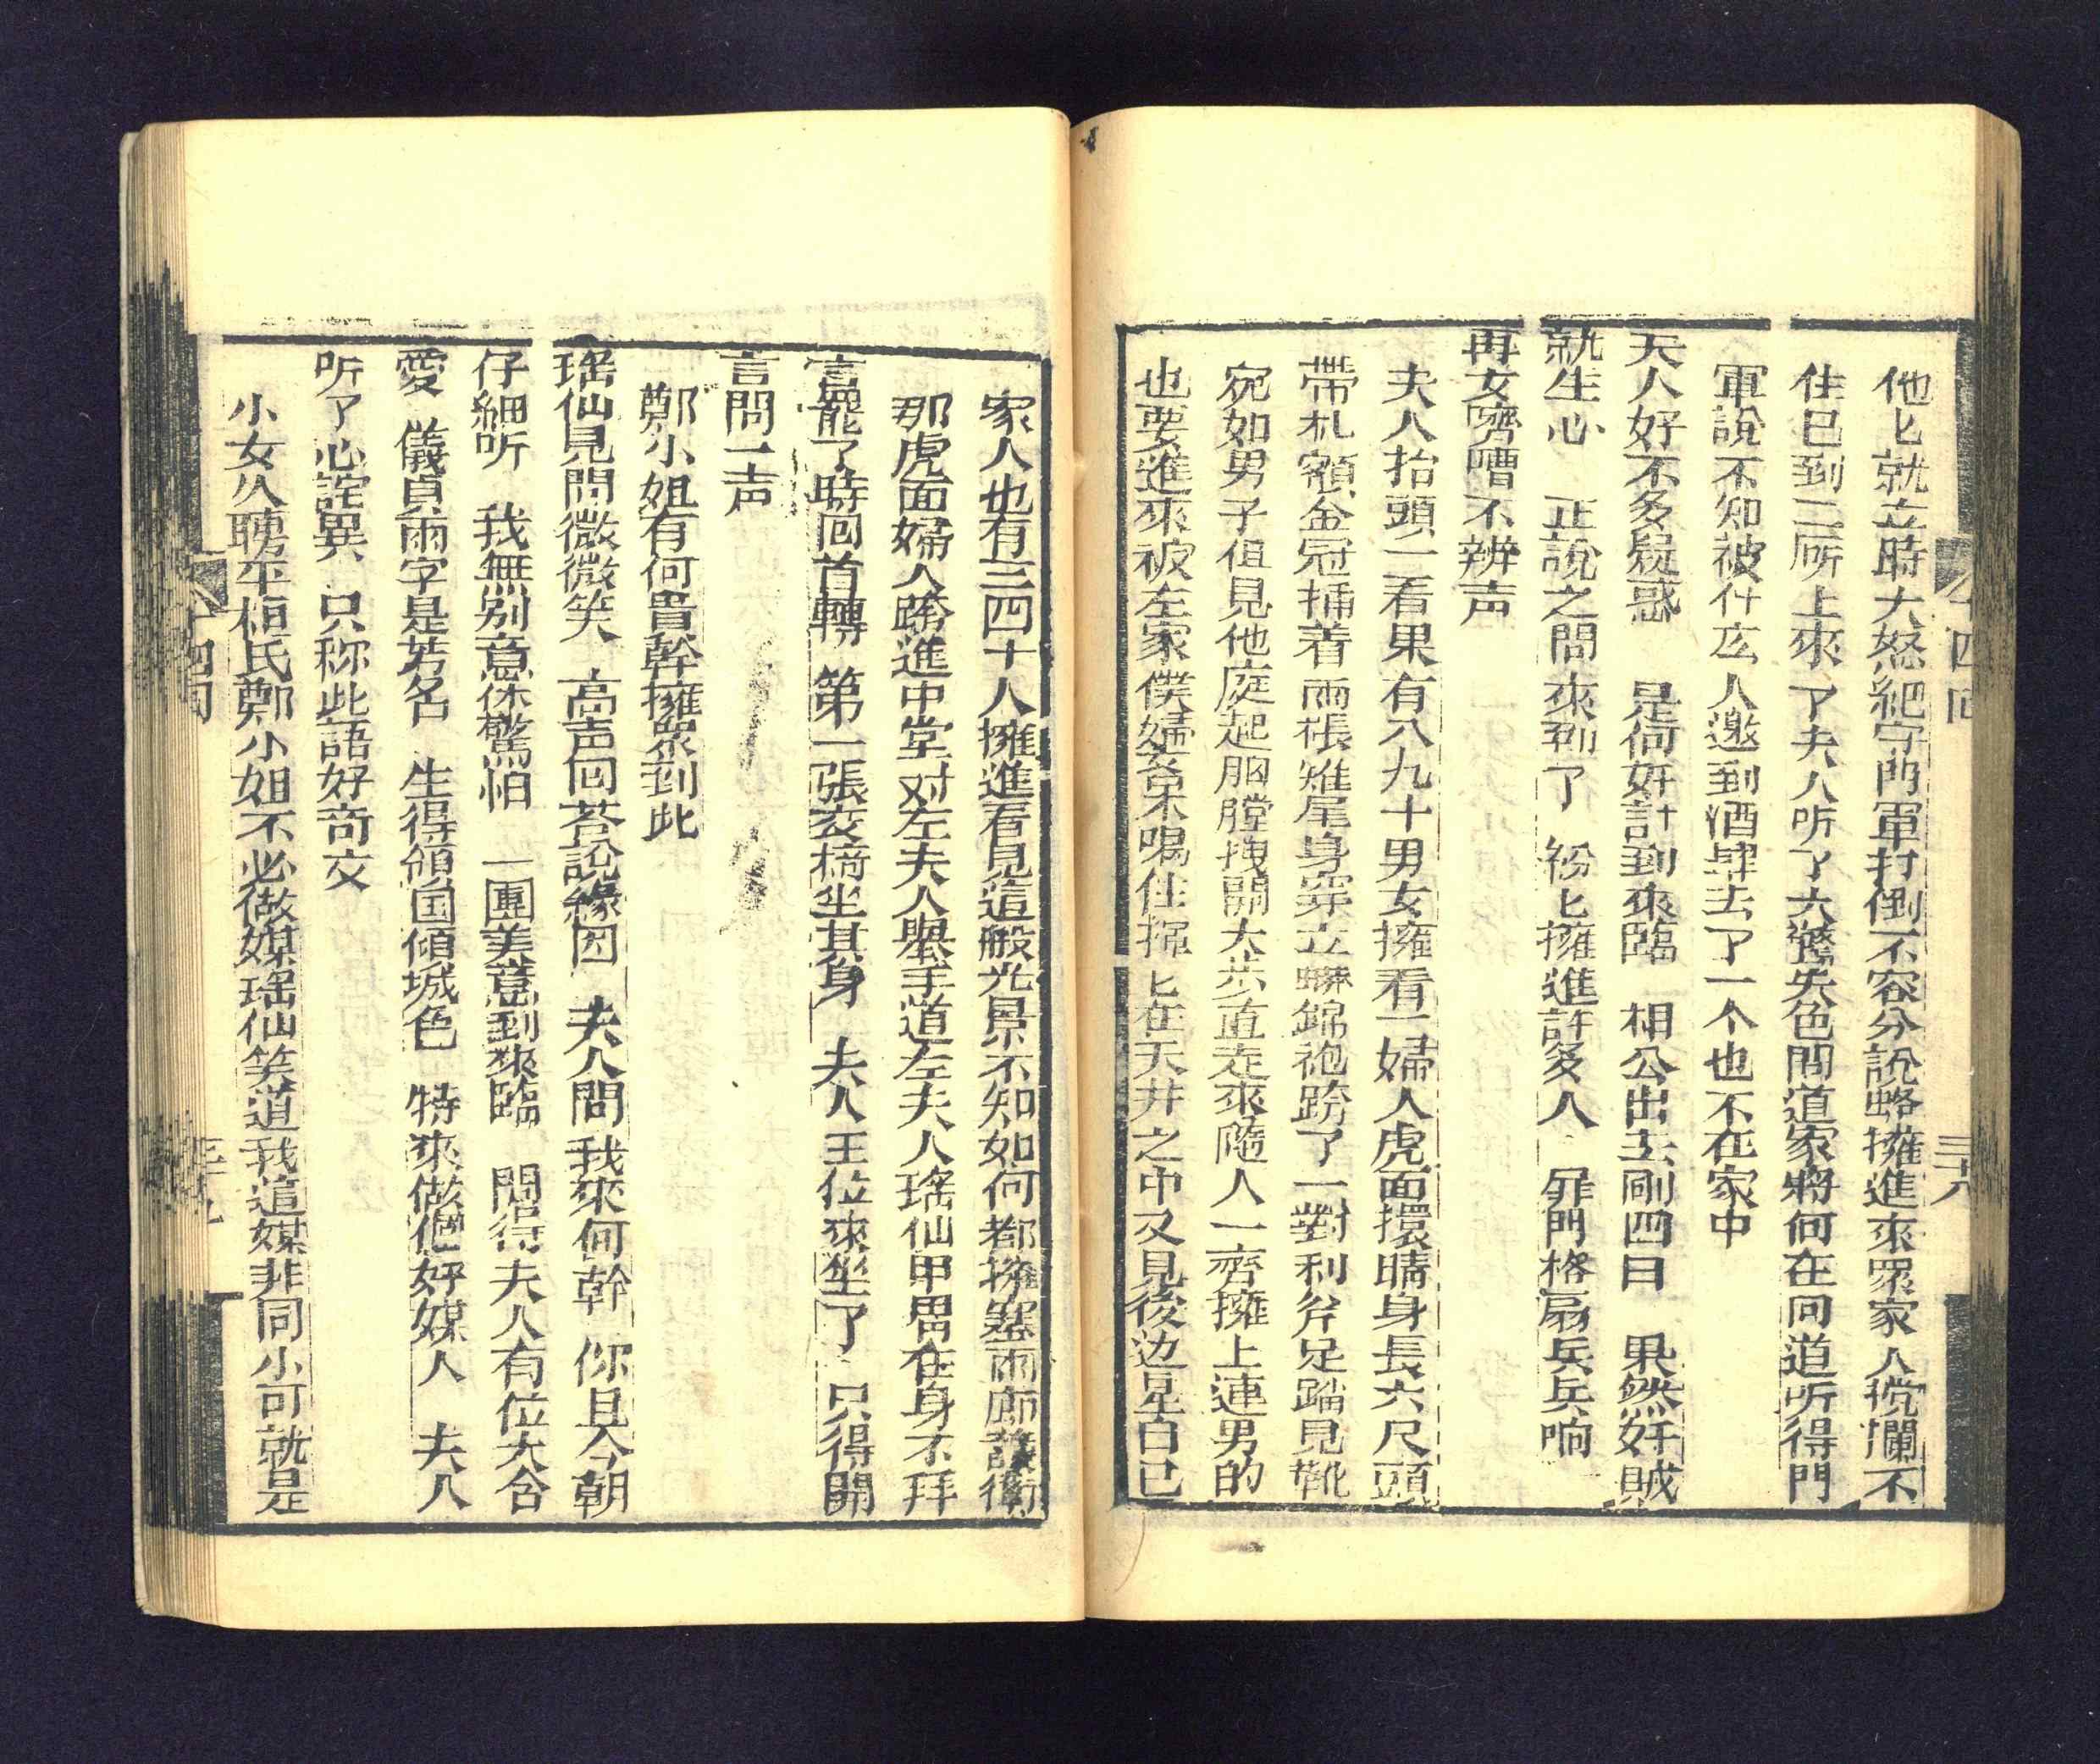 他匕就立時大怒紀守門軍打倒不容分說蜂擁進來眾家人攪攔不
住已到二所上來了夫人听了大驚失色問道家將何在回道听得門
軍說不知被什庅人邀到酒肆去了一个也不在家中
夫人好不多疑惑 是何奸計到來臨 相公出去剛四日 果然奸賊
就生心 正說之間來到了 紛匕擁進許多人 屏門格扇兵兵响
再女嘈嘈不辨声
夫人抬頭一看果有八九十男女擁看一婦人虎面環睛身長六尺頭
帶札額金冠插着兩根雉尾身穿立蟒錦袍跨了一對利斧足踏見靴
宛如男子但見他庭起胸膛拽開大步直走來隨人一齊擁上連男的
也要進來被左家僕婦等喝住擺匕在天井之中又見後边是自已
十四回
三十八
家人也有三四十人擁進看見這般光景不知如何都擁塞兩廊護衛
那虎面婦人跨進中堂对左夫人舉手道左夫人瑤仙甲冑在身不拜
言罷了時回首轉 第一張交椅坐其身 夫人王位來坐了 只得開
言問一声
鄭小姐有何貴幹擁眾到此
瑤仙見問微微笑 高声回荅說緣因 夫人問我來何幹 你且今朝
仔細听 我無别意休驚怕 一團美意到來臨 聞得夫人有位大含
愛 儀貞兩字是芳名 生得傾国傾城色 特來做個好媒人 夫人
听了心詫異 只称此語好奇文
小女久聘平桓氏鄭小姐不必做媒瑤仙笑道我這媒非同小可就是
十四回
三十九